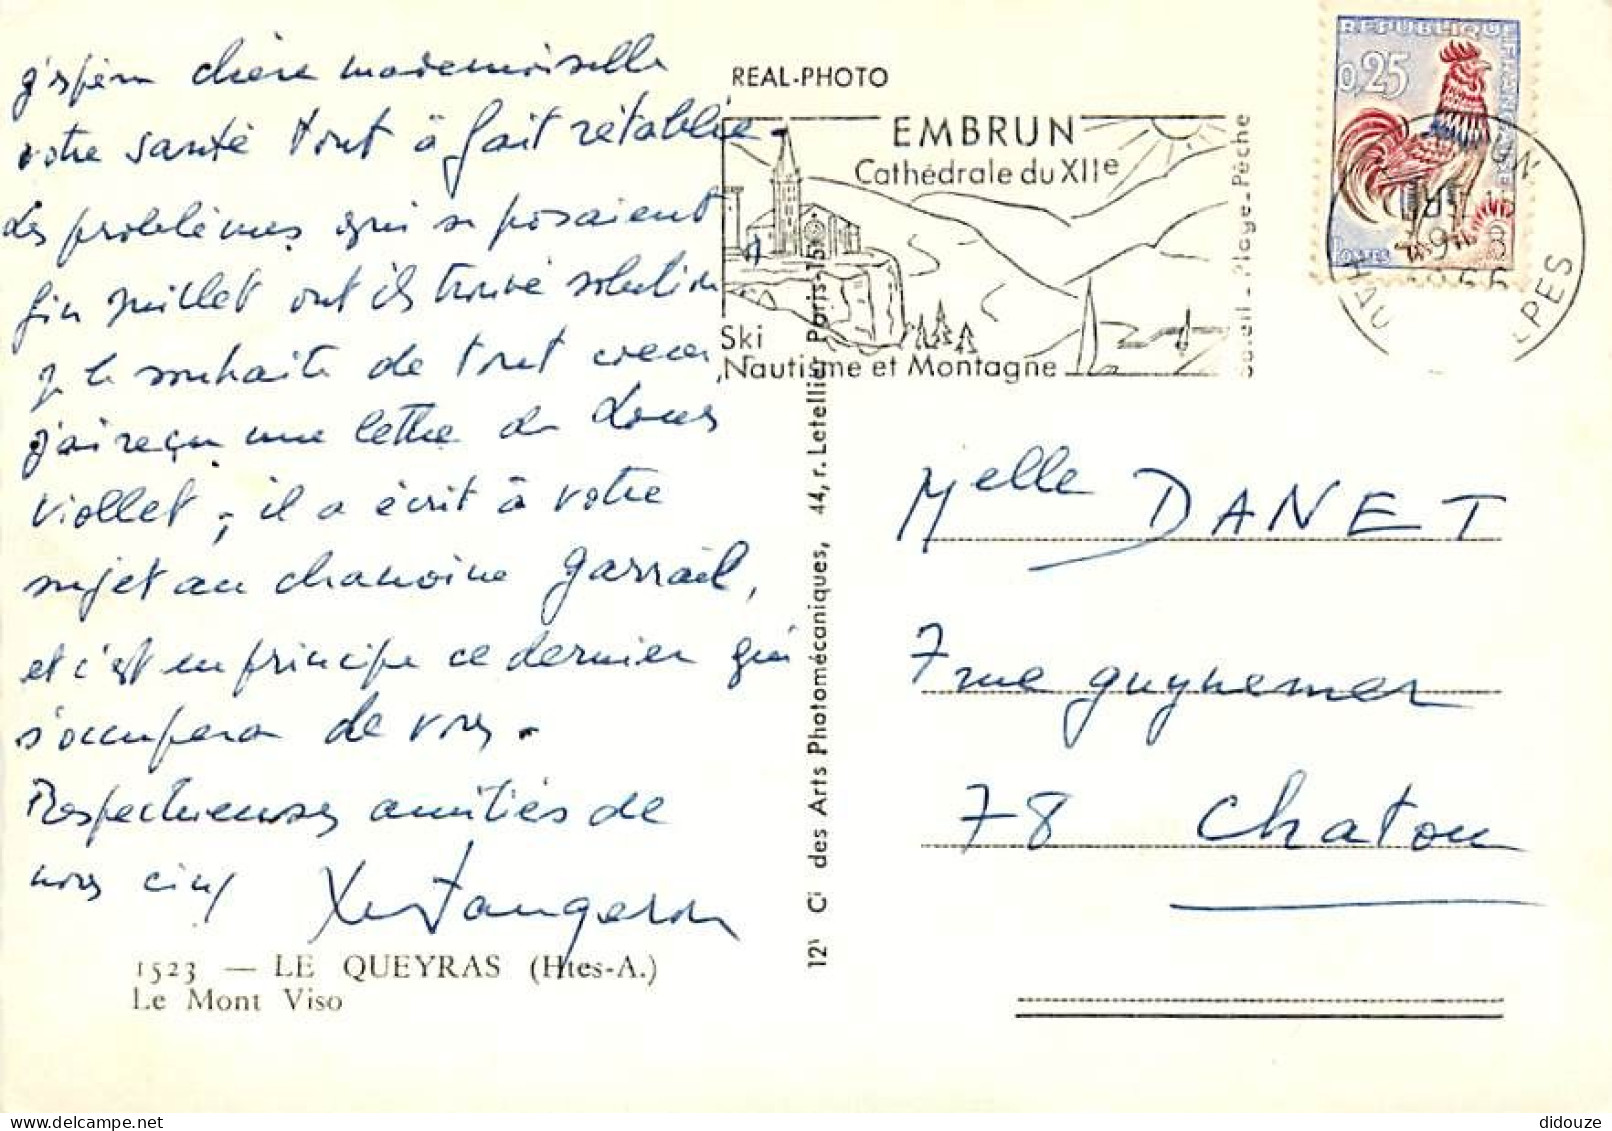 j'espère chère mademoiselle
votre santé tout à fait rétablie.
Les problèmes qui se posaient
fin juillet ont ils trouvé solution
je le souhaite de tout coeur
j'ai reçu une lettre de Louis
Viollet, il a écrit à votre
sujet au chanoine Garrail,
et c'est en principe ce dernier qui
s'occupera de vous.
Respectueuses amitiés de
nous cinq
1523 — LE QUEYRAS (Htes-A.)
Le Mont Viso
REAL-PHOTO
EMBRUN
Cathédrale du XIIe
Ski
Nautisme et Montagne
Soleil - Plage - Pêche
des Arts Photomécaniques, 44, r. Letellier Paris-15
REPUBLIQUE FRANCAISE
0,25
POSTES
ALPES
Melle DANET
7 rue guynemer
78 Chatou
didouze